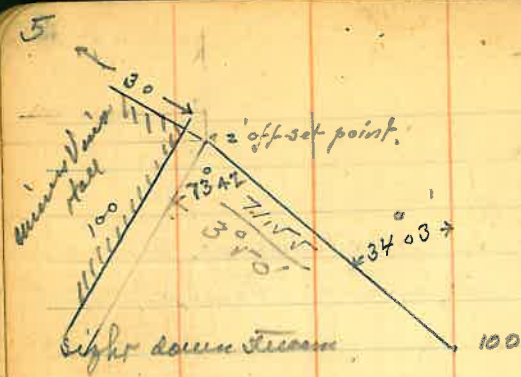 5
30
2 off-set point.
100
73°42
71.55
3°50'
34°03
sight down
100